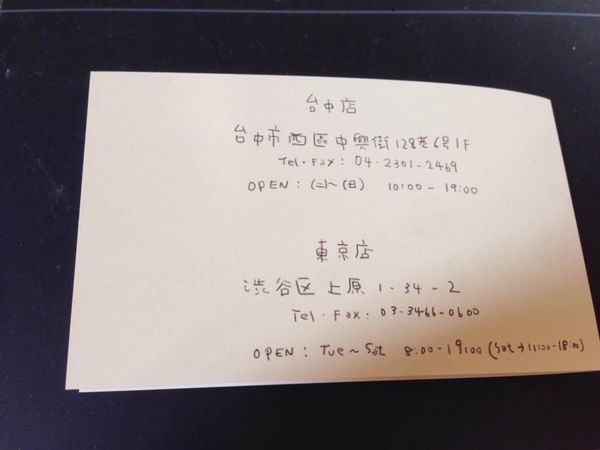 台中店
台中市西區中興街128巷6号1F
Tel・Fax: 04-2301-2469
OPEN: (二)~(日) 10:00-19:00
東京店
渋谷区上原1-34-2
Tel・Fax: 03-3466-0600
OPEN: Tue~Sat 8:00-19:00 (Sat→11:00-18:00)